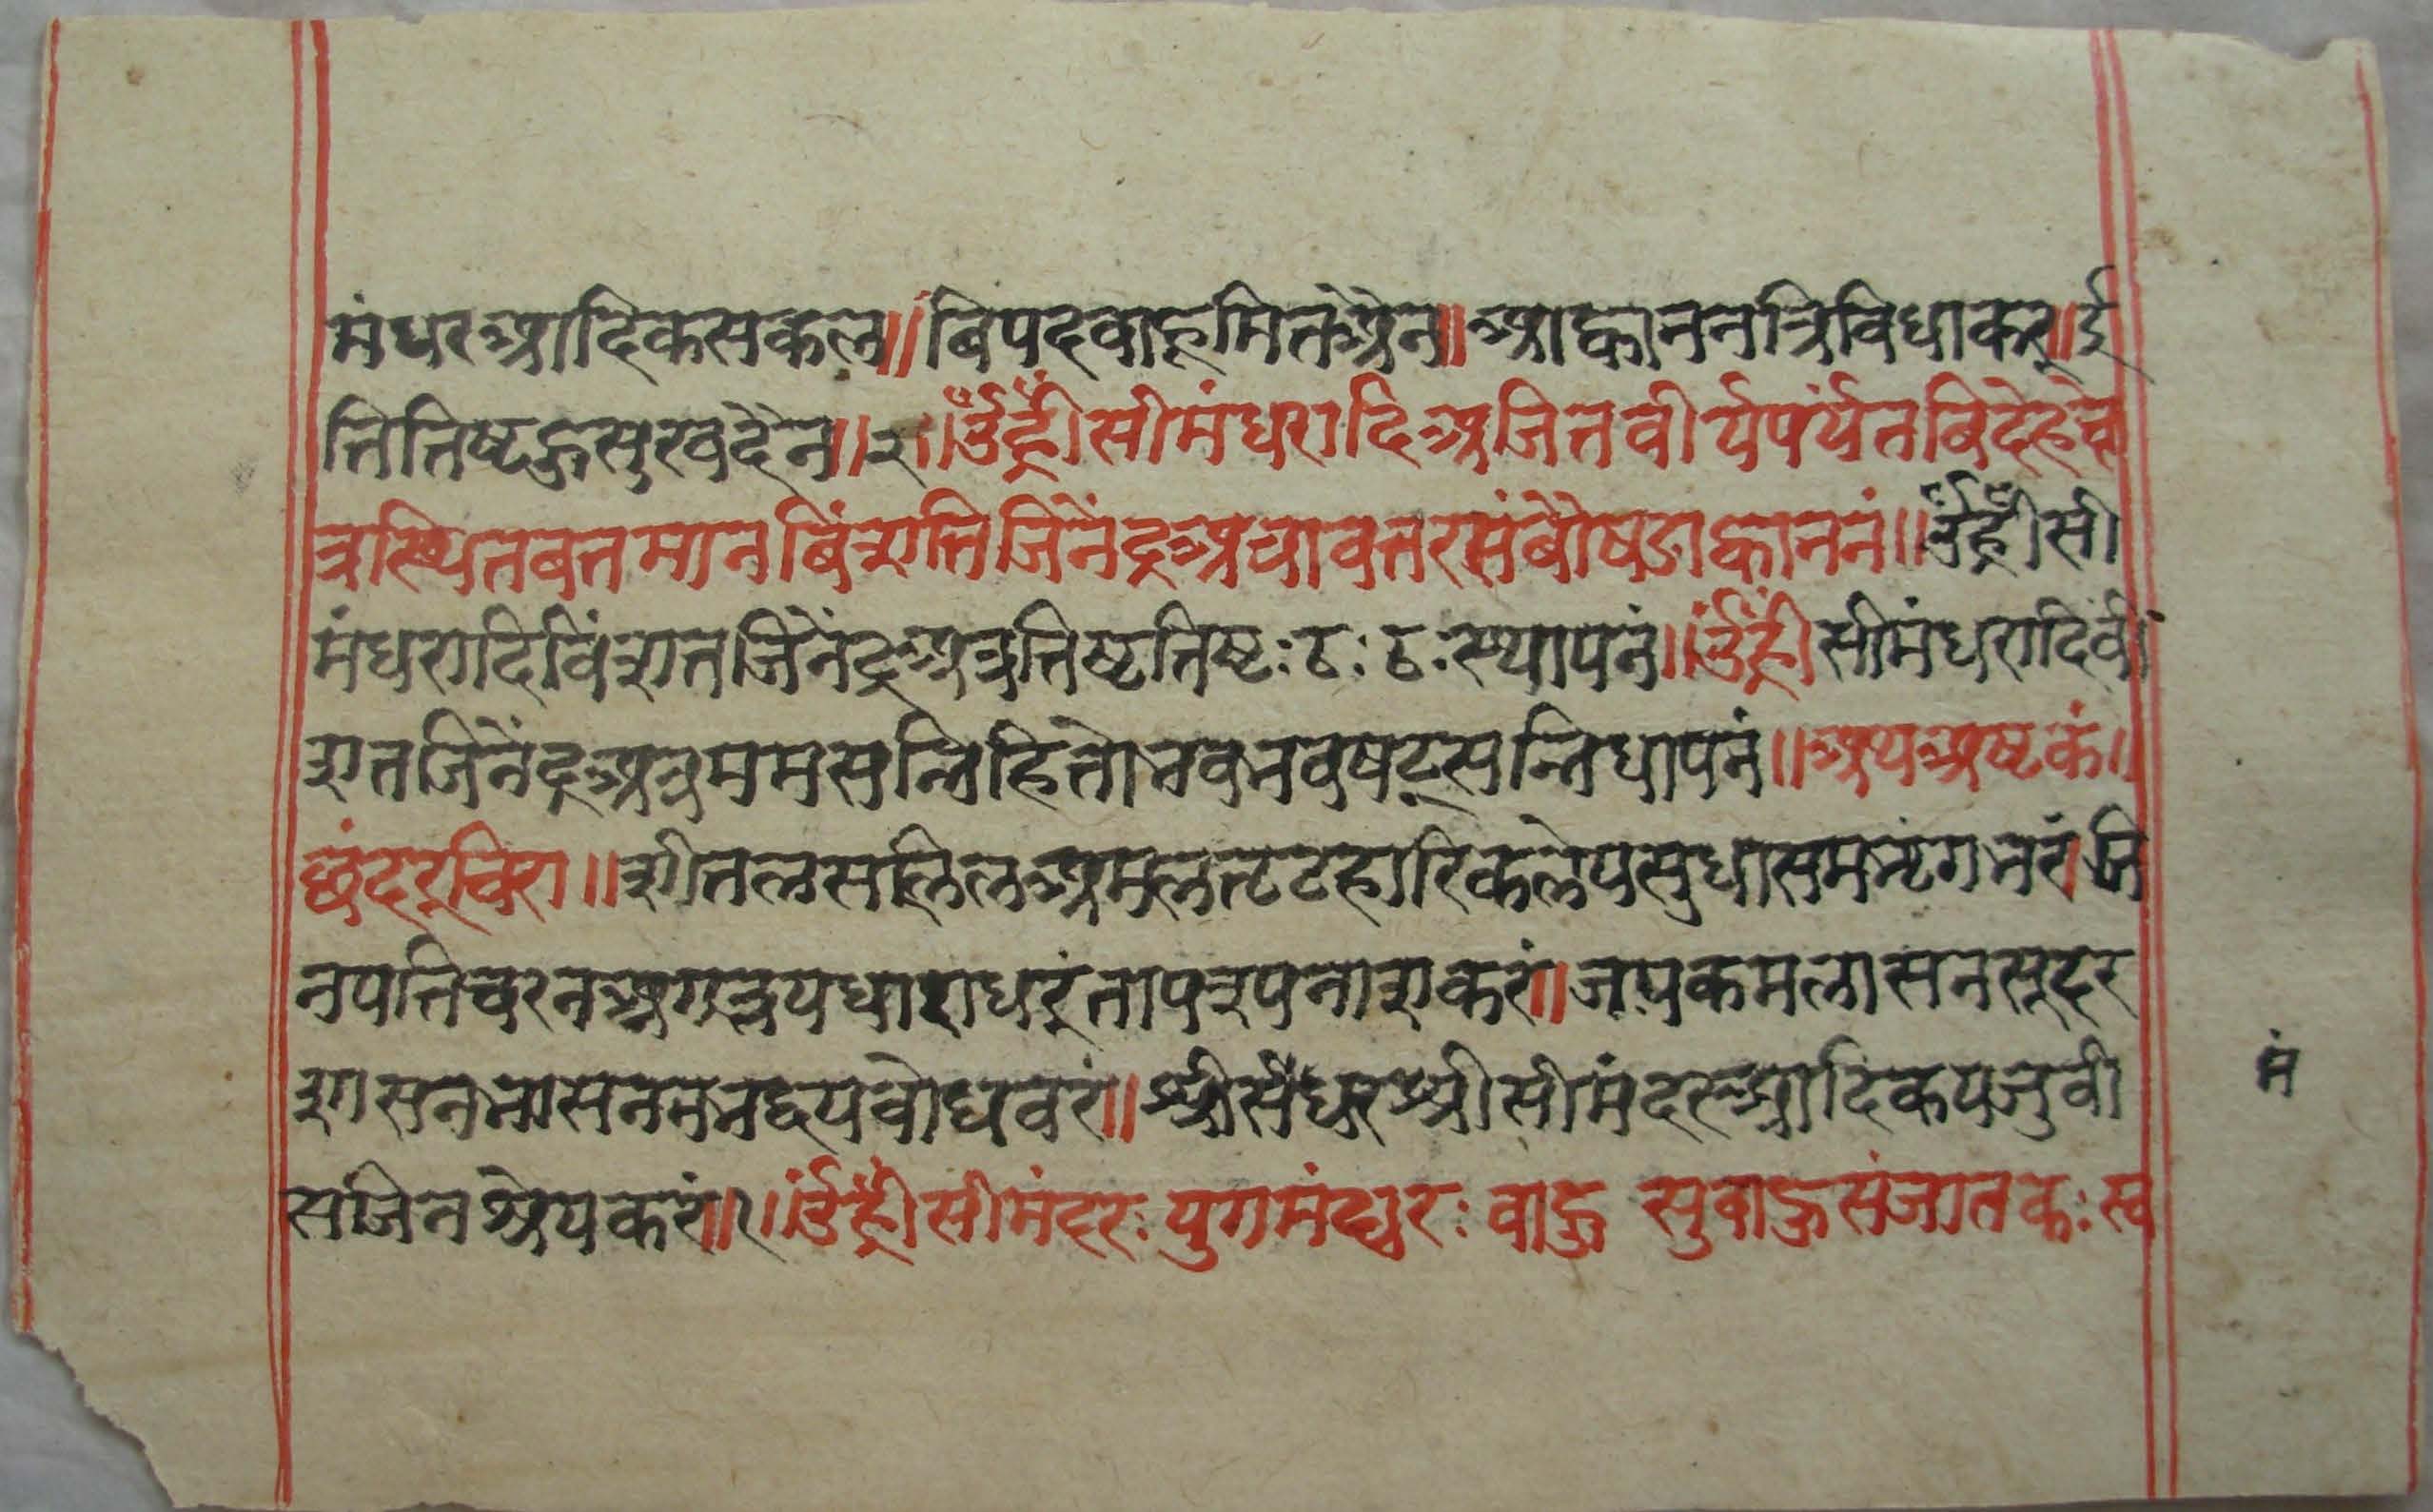 मंधरआदिकसकल॥बिपदवाहूमितश्रैन॥आह्वाननत्रिविधाकरू॥ई
तितिष्टहुसुखदैन॥२॥ॐह्रीँसीमंधरादिअजितवीर्यपंर्यतबिदेहक्षे
त्रस्थितबतमानबिंशतिजिनेंद्रअत्रावतरसंबौषडाह्वाननं॥ॐह्रीँसी
मंधरादिविंशतजिनेंद्रअत्रतिष्टतिष्टःठःठःस्थापनं॥ॐह्रीँसीमंधरादिवीं
शतजिनेंद्रअत्रममसन्निहितोभवभवषट्सन्निधापनं॥अथअष्टकं॥
छंदरूचिरा॥शीतलसलिलअमल हारिकलेपसुधासम भरं जि
नपतिचरनअग्रत्रयधाराधरूंतापत्रपनाशकरं॥जयकमलासनसूदर
शासनभासनभनद्दयवोधवरं॥श्रीसैंधरश्रीसीमंदरआदिकयजुवी
सजिनश्रेयकरं॥१॥ॐह्रीँसीमंदरः युगमंद्धरः वाहु सुवाहुसंजातकःस्व
मं